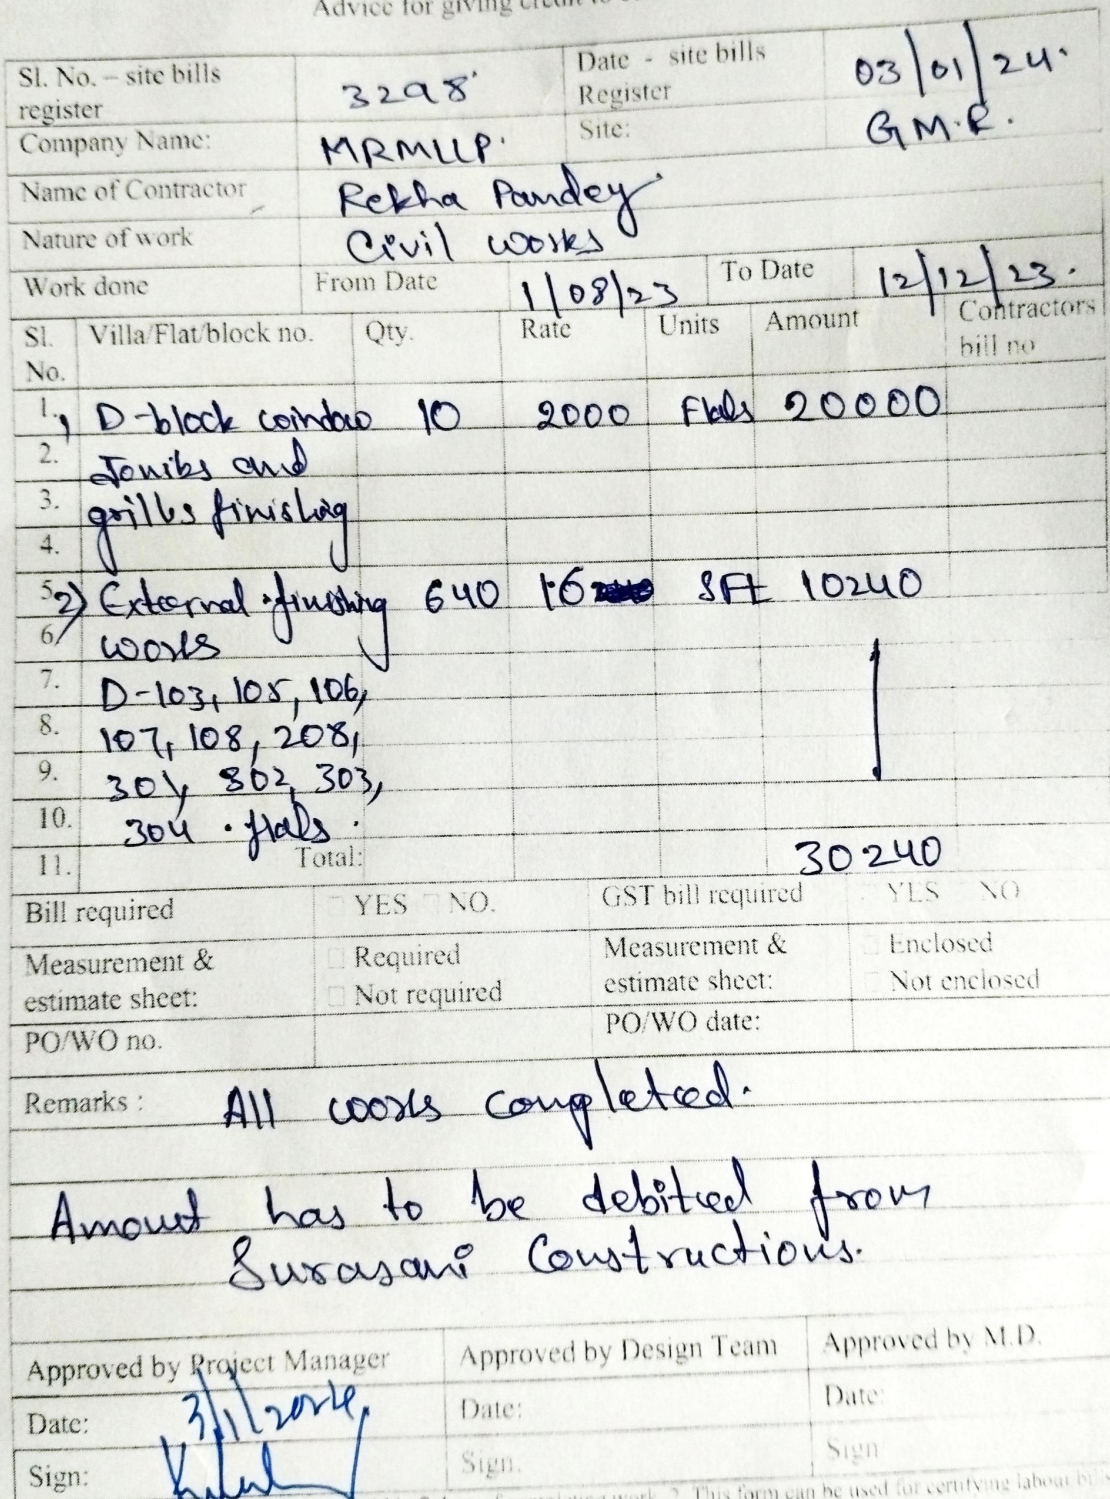 Advice for giving credit to
Sl. No. – site bills register 3298 Date - site bills Register 03/01/24.
Company Name: MRMLLP. Site: G.M.R.
Name of Contractor Rekha Pandey
Nature of work Civil works
Work done From Date 1/08/23 To Date 12/12/23.
Sl. No. Villa/Flat/block no. Qty. Rate Units Amount Contractors bill no
1. 1) D-block window 10 2000 Flats 20000
2. Jombs and
3. grills finishing
4.
5. 2) External finishing 640 16 SFt 10240
6. works
7. D-103, 105, 106,
8. 107, 108, 208,
9. 301, 302, 303,
10. 304 . flats .
11. Total: 30240
Bill required YES NO. GST bill required YES NO
Measurement & estimate sheet: Required Not required Measurement & estimate sheet: Enclosed Not enclosed
PO/WO no. PO/WO date:
Remarks : All works completed.
Amount has to be debited from
Surasani Constructions.
Approved by Project Manager Approved by Design Team Approved by M.D.
Date: 3/1/2024 Date: Date:
Sign: Sign. Sign
work. 2. This form can be used for certifying labour bills